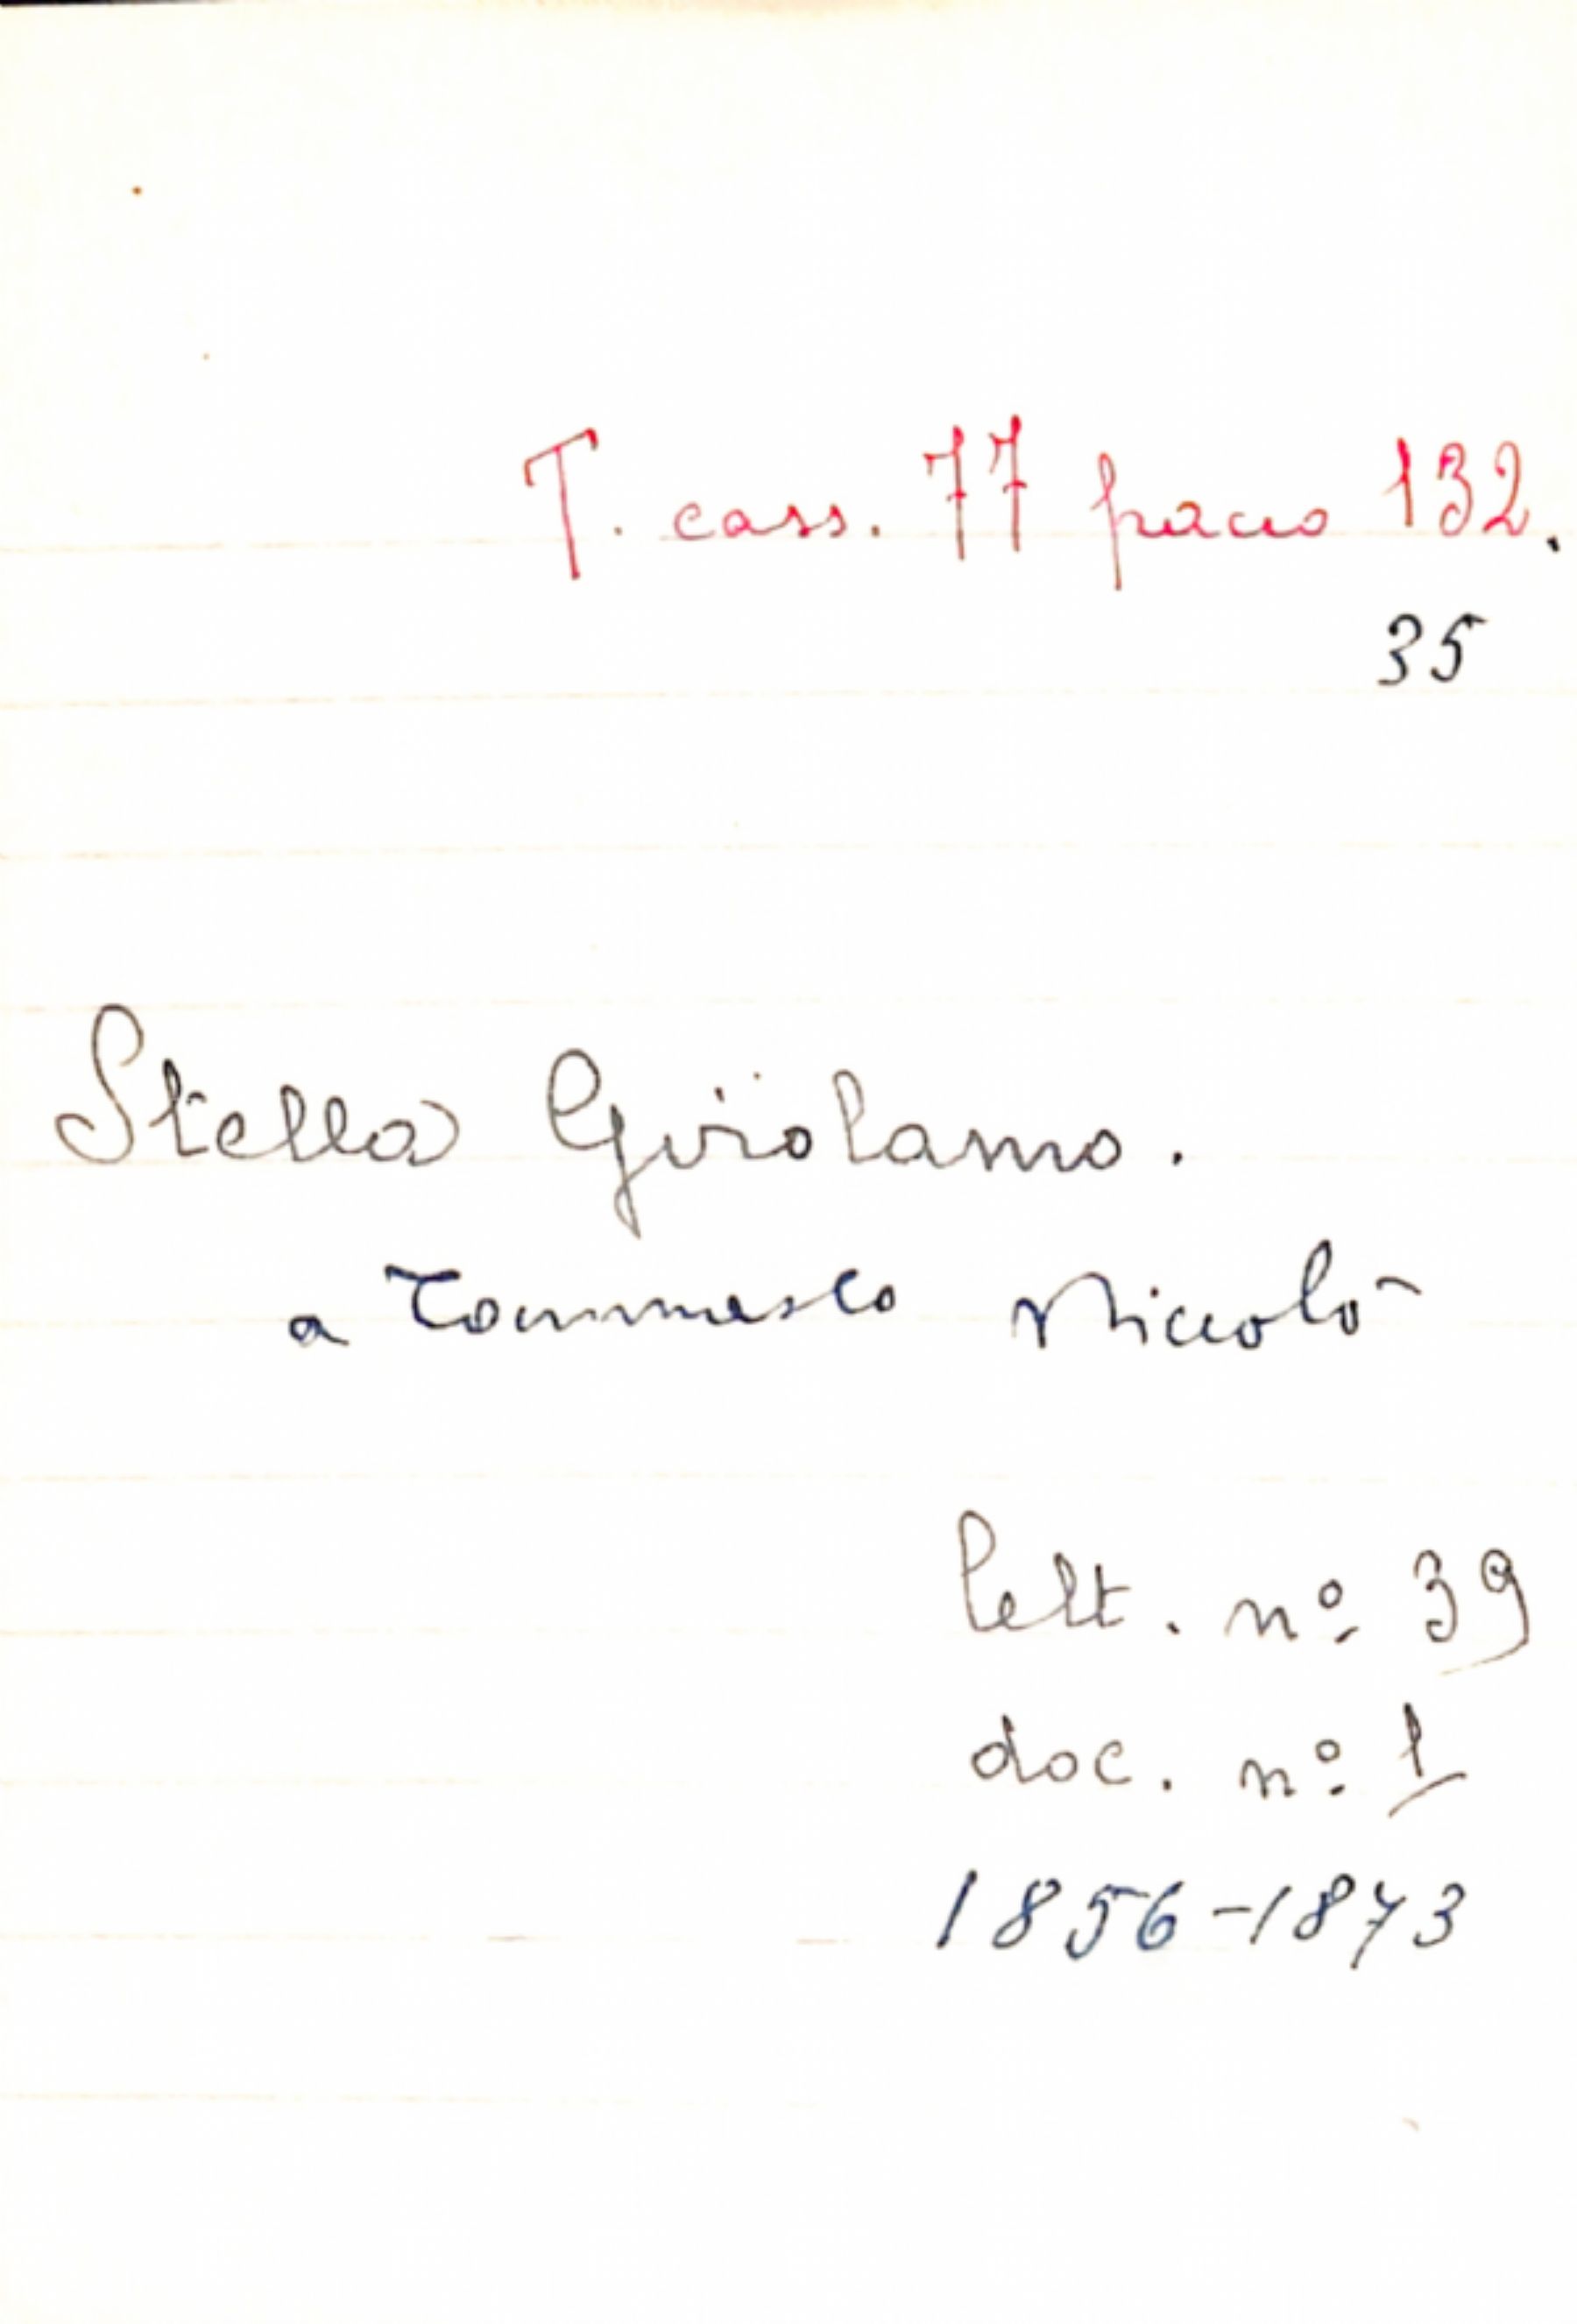 T. cass. 77 pacco 132.
35
Stella Girolamo.
a Tommaseo Niccolò
lett. nº 39
doc. nº 1
1856-1873